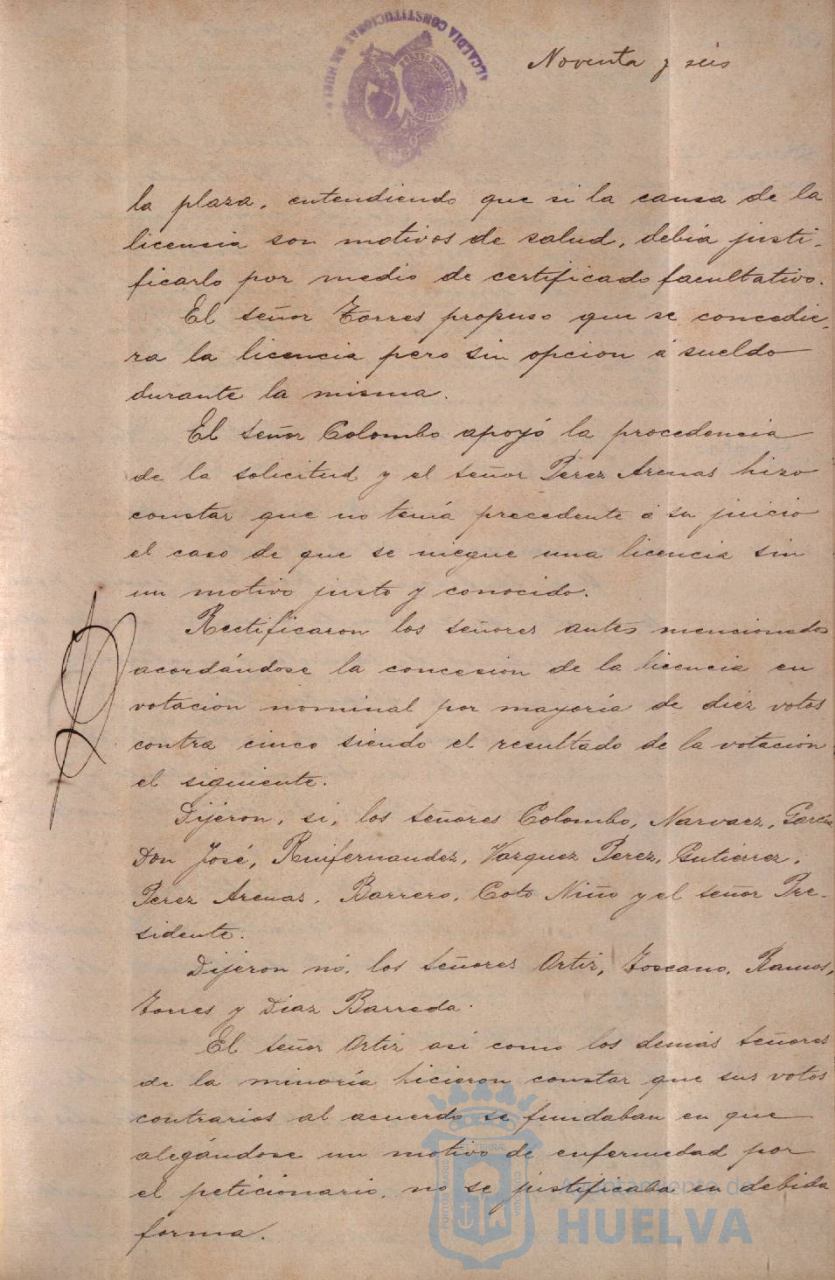 ALCALDIA CONSTITUCIONAL DE HUELVA
Noventa y seis
la plaza, entendiendo que si la causa de la
licensia son motivos de salud, debia justi-
ficarlo por medio de certificado facultativo.
El señor Torres propuso que se concedie-
ra la licencia pero sin opcion á sueldo
durante la misma.
El señor Colombo apoyó la procedencia
de la solicitud y el señor Perez Arenas hizo
constar que no tenía precedente á su juicio
el caso de que se niegue una licencia sin
un motivo justo y conocido.
Rectificaron los señores antes mencionados
acordándose la concesión de la licencia en
votacion nominal por mayoría de diéz votos
contra cinco siendo el resultado de la votación
el siguiente.
Dijéron, si, los señores Colombo, Narvaez, García
Don José, Ruifernandez, Vazquez Perez, Gutiérrez,
Perez Arenas, Barrero, Coto Niño y el señor Pre-
sidente.
Dijeron nó, los señores Ortiz, Toscano, Ramos,
Torres y Diaz Barreda.
El señor Ortiz así como los demás señores
de la minoría hicieron constar que sus votos
contrarios al acuerdo se fundaban en que
alegándose un motivo de enfermedad por
el peticionario, no se justificaba en debida
forma.
Ayuntamiento de
HUELVA